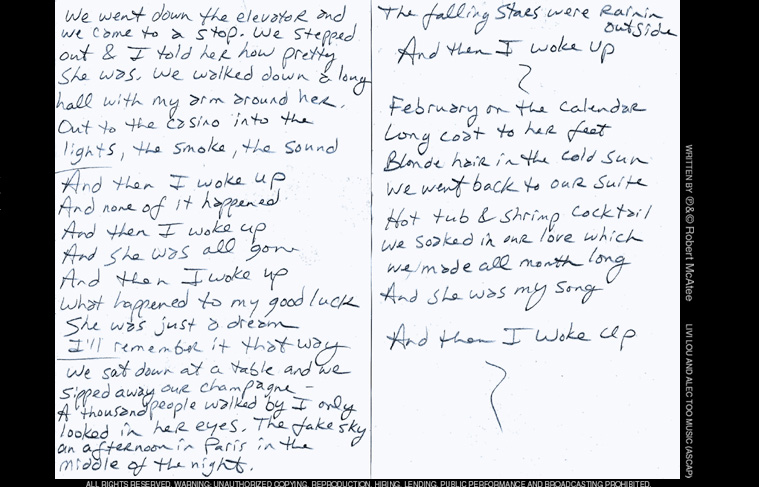 We went down the elevator and
we came to a stop. We stepped
out & I told her how pretty
She was. We walked down a long
hall with my arm around her.
Out to the casino into the
lights, the smoke, the sound
And then I woke up
And none of it happened
And then I woke up
And she was all gone
And then I woke up
What happened to my good luck
She was just a dream
I'll remember it that way
We sat down at a table and we
Sipped away our champagne –
A thousand people walked by I only
looked in her eyes. The fake sky
an afternoon in Paris in the
middle of the night.
The falling stars were Rainin
outside
And then I woke up
February on the calendar
Long coat to her feet
Blonde hair in the cold sun
We went back to our suite
Hot tub & shrimp cocktail
We soaked in our love which
we made all month long
And she was my song
And then I woke up
WRITTEN BY ℗&© Robert McAtee LIVI LOU AND ALEC TOO MUSIC (ASCAP)
ALL RIGHTS RESERVED. WARNING: UNAUTHORIZED COPYING, REPRODUCTION, HIRING, LENDING, PUBLIC PERFORMANCE AND BROADCASTING PROHIBITED.